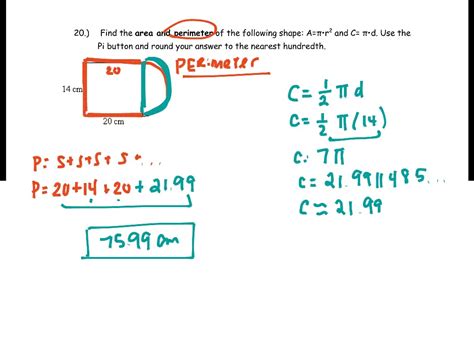 20.) Find the area and perimeter of the following shape: A=π•r² and C= π•d. Use the
Pi button and round your answer to the nearest hundredth.
20
PERimeteR
14 cm
20 cm
C = 1/2 π d
C = 1/2 π(14)
C: 7π
C = 21.9911485...
C ≈ 21.99
P: S+S+S+ S+...
P= 20+14+20+21.99
75.99 cm